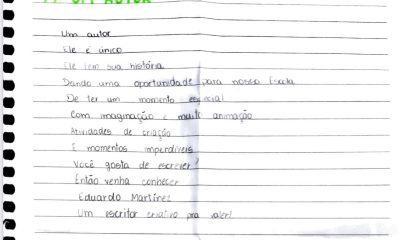 UM AUTOR
Um autor
Ele é único
Ele tem sua história
Dando uma oportunidade para nossa Escola
De ter um momento especial
Com imaginação e muita animação
Atividades de criação
E momentos imperdíveis
Você gosta de escrever?
Então venha conhecer
Eduardo Martínez
Um escritor criativo pra valer!